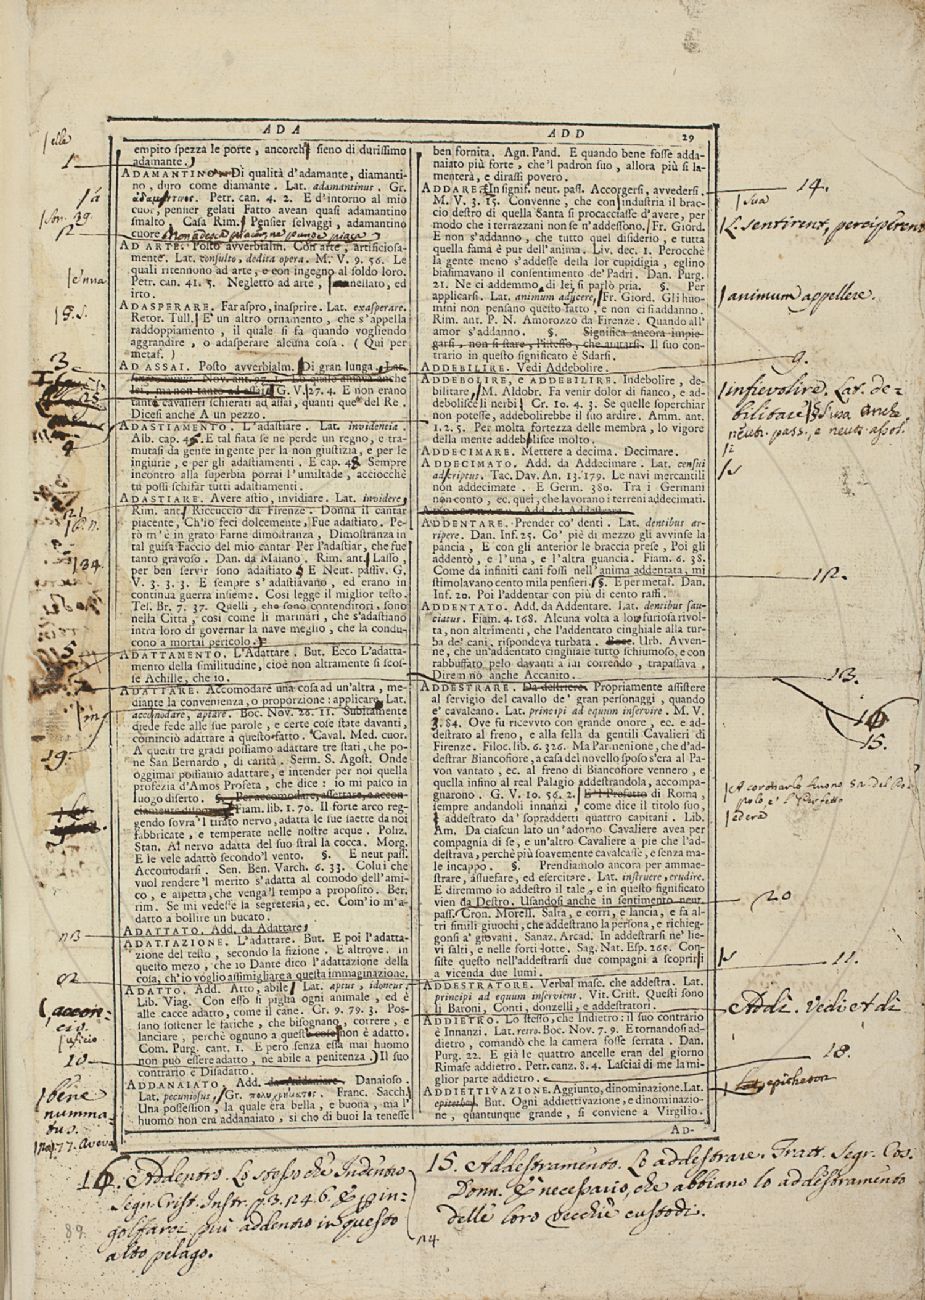 ADA
ADD
29
empito spezza le porte, ancorch sieno di durissimo
adamante.
ADAMANTINO. Di qualità d'adamante, diamanti-
no, duro come diamante. Lat. adamantinus. Gr.
Petr. can. 4. 2. E d'intorno al mio
cuor, pensier gelati Fatto avean quasi adamantino
smalto. Casa Rim. Pensier selvaggi, adamantino
cuore
AD ARTE. Posto avverbialm. Con arte, artificiosa-
mente. Lat. consulto, dedita opera. M. V. 9. 56. Le
quali ritennono ad arte, e con ingegno al soldo loro.
Petr. can. 41. 5. Negletto ad arte, nanellato, ed
irto.
ADASPERARE. Far aspro, inasprire. Lat. exasperare.
Retor. Tull. E' un altro ornamento, che s'appella
raddoppiamento, il quale si fa quando vogliendo
aggrandire, o adasperare alcuna cosa. (Qui per
metaf.)
AD ASSAI. Posto avverbialm. Di gran lunga. Lat.
G. V. 27. 4. E non erano
tanti cavalieri schierati ad assai, quanti que' del Re.
Dicesi anche A un pezzo.
ADASTIAMENTO. L'adastiare. Lat. invidentia.
Alb. cap. 45. E tal fiata se ne perde un regno, e tra-
mutasi da gente in gente per la non giustizia, e per le
ingiurie, e per gli adastiamenti. E cap. 48. Sempre
incontro alla superbia porrai l'umiltade, acciocchè
tu possi schifar tutti adastiamenti.
ADASTIARE. Avere astio, invidiare. Lat. invidere,
Rim. ant. Riccuccio da Firenze. Donna il cantar
piacente, Ch'io feci dolcemente, Fue adastiato. Pe-
rò m'è in grato Farne dimostranza, Dimostranza in
tal guisa Faccio del mio cantar Per l'adastiar, che fue
tanto gravoso. Dan. da Maiano. Rim. ant. Lasso,
per ben servir sono adastiato. E Neut. passiv. G.
V. 3. 3. 3. E sempre s'adastiavano, ed erano in
continua guerra insieme. Così legge il miglior testo.
Tes. Br. 7. 37. Quelli, che sono contenditori, sono
nella Città, così come li marinari, che s'adastiano
intra loro di governar la nave meglio, che la condu-
cono a mortal pericolo.
ADATTAMENTO. L'Adattare. But. Ecco L'adatta-
mento della similitudine, cioè non altramente si scos-
se Achille, che io.
ADATTARE. Accomodare una cosa ad un'altra, me-
diante la convenienza, o proporzione: applicare. Lat.
accomodare, aptare. Boc. Nov. 20. 11. Subitamente
diede fede alle sue parole, e certe cose state davanti,
cominciò adattare a questo fatto. Caval. Med. cuor.
A questi tre gradi possiamo adattare tre stati, che po-
ne San Bernardo, di carità. Serm. S. Agost. Onde
oggimai possiamo adattare, e intender per noi quella
profezia d'Amos Profeta, che dice: io mi pasco in
luogo diserto. §. Per accomodare, assettare, e accon-
Fiam. lib. 1. 70. Il forte arco reg-
gendo sovra'l tirato nervo, adatta le sue saette da noi
fabbricate, e temperate nelle nostre acque. Poliz.
Stan. Al nervo adatta del suo stral la cocca. Morg.
E le vele adattò secondo'l vento. §. E neut. pass.
Accomodarsi. Sen. Ben. Varch. 6. 33. Colui che
vuol rendere'l merito s'adatta al comodo dell'ami-
co, e aspetta, che venga'l tempo a proposito. Ber.
rim. Se mi vedesse la segreteria, ec. Com'io m'a-
datto a bollire un bucato.
ADATTATO. Add. da Adattare
ADATTAZIONE. L'adattare. But. E poi l'adatta-
zione del testo, secondo la fizione. E altrove. in
questo mezo, che io Dante dico l'adattazione della
cosa, ch'io voglio assimigliare a questa immaginazione.
ADATTO. Add. Atto, abile. Lat. aptus, idoneus,
Lib. Viag. Con esso si piglia ogni animale, ed è
alle cacce adatto, come il cane. Cr. 9. 79. 3. Pos-
sano sostener le fatiche, che bisognano, correre, e
lanciare, perchè ognuno a queste cose non è adatto.
Com. Purg. cant. 1. E però senza essa mai huomo
non può essere adatto, nè abile a penitenza. Il suo
contrario è Disadatto.
ADDANAIATO. Add. da Addanaiare. Danaioso.
Lat. pecuniosus, Gr. Franc. Sacch.
Una possession, la quale era bella, e buona, ma l'
huomo non era addanaiato, si cho di buoi la tenesse
ben fornita. Agn. Pand. E quando bene fosse adda-
naiato più forte, che'l padron suo, allora più si la-
menterà, e dirassi povero.
ADDARE. In signif. neut. pass. Accorgersi, avvedersi.
M. V. 3. 15. Convenne, che con industria il brac-
cio destro di quella Santa si procacciasse d'avere, per
modo che i terrazzani non se n'addessono. Fr. Giord.
E non s'addanno, che tutto quel disiderio, e tutta
quella fama è pur dell'anima. Liv. dec. 1. Perocchè
la gente meno s'addesse della lor cupidigia, eglino
biasimavano il consentimento de' Padri. Dan. Purg.
21. Ne ci addemmo di lei, si parlò pria. §. Per
applicarsi. Lat. animum adjicere, Fr. Giord. Gli huo-
mini non pensano questo fatto, e non ci si addanno.
Rim. ant. P. N. Amorozzo da Firenze. Quando all'
amor s'addanno. §. Significa ancora impie-
garsi, non si stare, l'istesso, che aiutarsi. Il suo con-
trario in questo significato è Sdarsi.
ADDEBILERE. Vedi Addebolere.
ADDEBOLERE, e ADDEBILIRE. Indebolire, de-
bilitare, M. Aldobr. Fa venir dolor di fianco, e ad-
debolisce li nerbi. Cr. 10. 4. 3. Se quelle soperchiar
non potesse, addebolirebbe il suo ardire. Amm. ant.
1. 2. 5. Per molta fortezza delle membra, lo vigore
della mente addebolisce molto.
ADDECIMARE. Mettere a decima. Decimare.
ADDECIMATO. Add. da Addecimare. Lat. censiti
adscriptus. Tac. Dav. An. 13. 179. Le navi mercantili
non addecimate. E Germ. 380. Tra i Germani
non conto, ec. quei, che lavorano i terreni addecimati.
ADDENTARE. Prender co' denti. Lat. dentibus ar-
ripere. Dan. Inf. 25. Co' piè di mezzo gli avvinse la
pancia, E con gli anterior le braccia prese, Poi gli
addentò, e l'una, e l'altra guancia. Fiam. 6. 38.
Come da infiniti cani fossi nell'anima addentata, mi
stimolavano cento mila pensieri. §. E per metaf. Dan.
Inf. 20. Poi l'addentar con più di cento raffi.
ADDENTATO. Add. da Addentare. Lat. dentibus sau-
ciatus. Fiam. 4. 168. Alcuna volta a lor furiosa rivol-
ta, non altrimenti, che l'addentato cinghiale alla tur-
ba de' cani, rispondeva turbata. Urb. Avven-
ne, che un'addentato cinghiale tutto schiumoso, e con
rabbuffato pelo davanti a lui correndo, trapassava,
Diremmo anche Accanito.
ADDESTRARE. Da destriero. Propriamente assistere
al servigio del cavallo de' gran personaggi, quando
e' cavalcano. Lat. principi ad equum inservire. M. V.
3. 84. Ove fu ricevuto con grande onore, ec. e ad-
destrato al freno, e alla sella da gentili Cavalieri di
Firenze. Filoc. lib. 6. 326. Ma Parmenione, che d'ad-
destrar Biancofiore, a casa del novello sposo s'era al Pa-
von vantato, ec. al freno di Biancofiore vennero, e
quella infino al real Palagio addestrandola, accompa-
gnarono. G. V. 10. 56. 2. E'l Profetto di Roma,
sempre andandoli innanzi, come dice il titolo suo,
addestrato da' sopraddetti quattro capitani. Lib.
Am. Da ciascun lato un'adorno Cavaliere avea per
compagnia di se, e un'altro Cavaliere a pie che l'ad-
destrava, perchè più soavemente cavalcasse, e senza ma-
le incappo. §. Prendiamolo ancora per ammae-
strare, assuefare, ed esercitare. Lat. instruere, erudire.
E diremmo io addestro il tale, e in questo significato
vien da Destro. Usandosi anche in sentimento neut.
pass. Cron. Morell. Salta, e corri, e lancia, e fa al-
tri simili giuochi, che addestrano la persona, e richieg-
gonsi a' giovani. Sanaz. Arcad. In addestrarsi ne' lie-
vi salti, e nelle forti lotte. Sag. Nat. Esp. 265. Con-
siste questo nell'addestrarsi due compagni a scoprirsi
a vicenda due lumi.
ADDESTRATORE. Verbal masc. che addestra. Lat.
principi ad equum inserviens. Vit. Crist. Questi sono
li Baroni, Conti, donzelli, e addestratori.
ADDIETRO. Lo stesso, che Indietro: il suo contrario
è Innanzi. Lat. retro. Boc. Nov. 7. 9. E tornandosi ad-
dietro, comandò che la camera fosse serrata. Dan.
Purg. 22. E già le quattro ancelle eran del giorno
Rimase addietro. Petr. canz. 8. 4. Lasciai di me la mi-
glior parte addietro.
ADDIETTIVAZIONE. Aggiunto, dinominazione. Lat.
But. Ogni addiettivazione, e dinominazio-
ne, quantunque grande, si conviene a Virgilio.
AD-
1
1a
2
3
4
5
19.
10
accon-
cio.
uficio
bene
numma-
tus.
77. Aveva
14.
Sua
L. sentirent, perciperent
animum appellere.
9.
infievolire. Lat. de-
bilitare. Si usa anche
neutr. pass., e neutr. assol.
12.
13.
16
15.
20
11.
Addì. Vedi et dì
18.
epitheton
16. Addentro. Lo stesso che Indentro
Segn. Crist. Instr. in-
golfarci più addentro in questo
alto pelago.
15. Addestramento. Lo addestrare. Tratt. Segr. Cos.
Donn. È necessario, che abbiano lo addestramento
delle loro vecchie custodi.